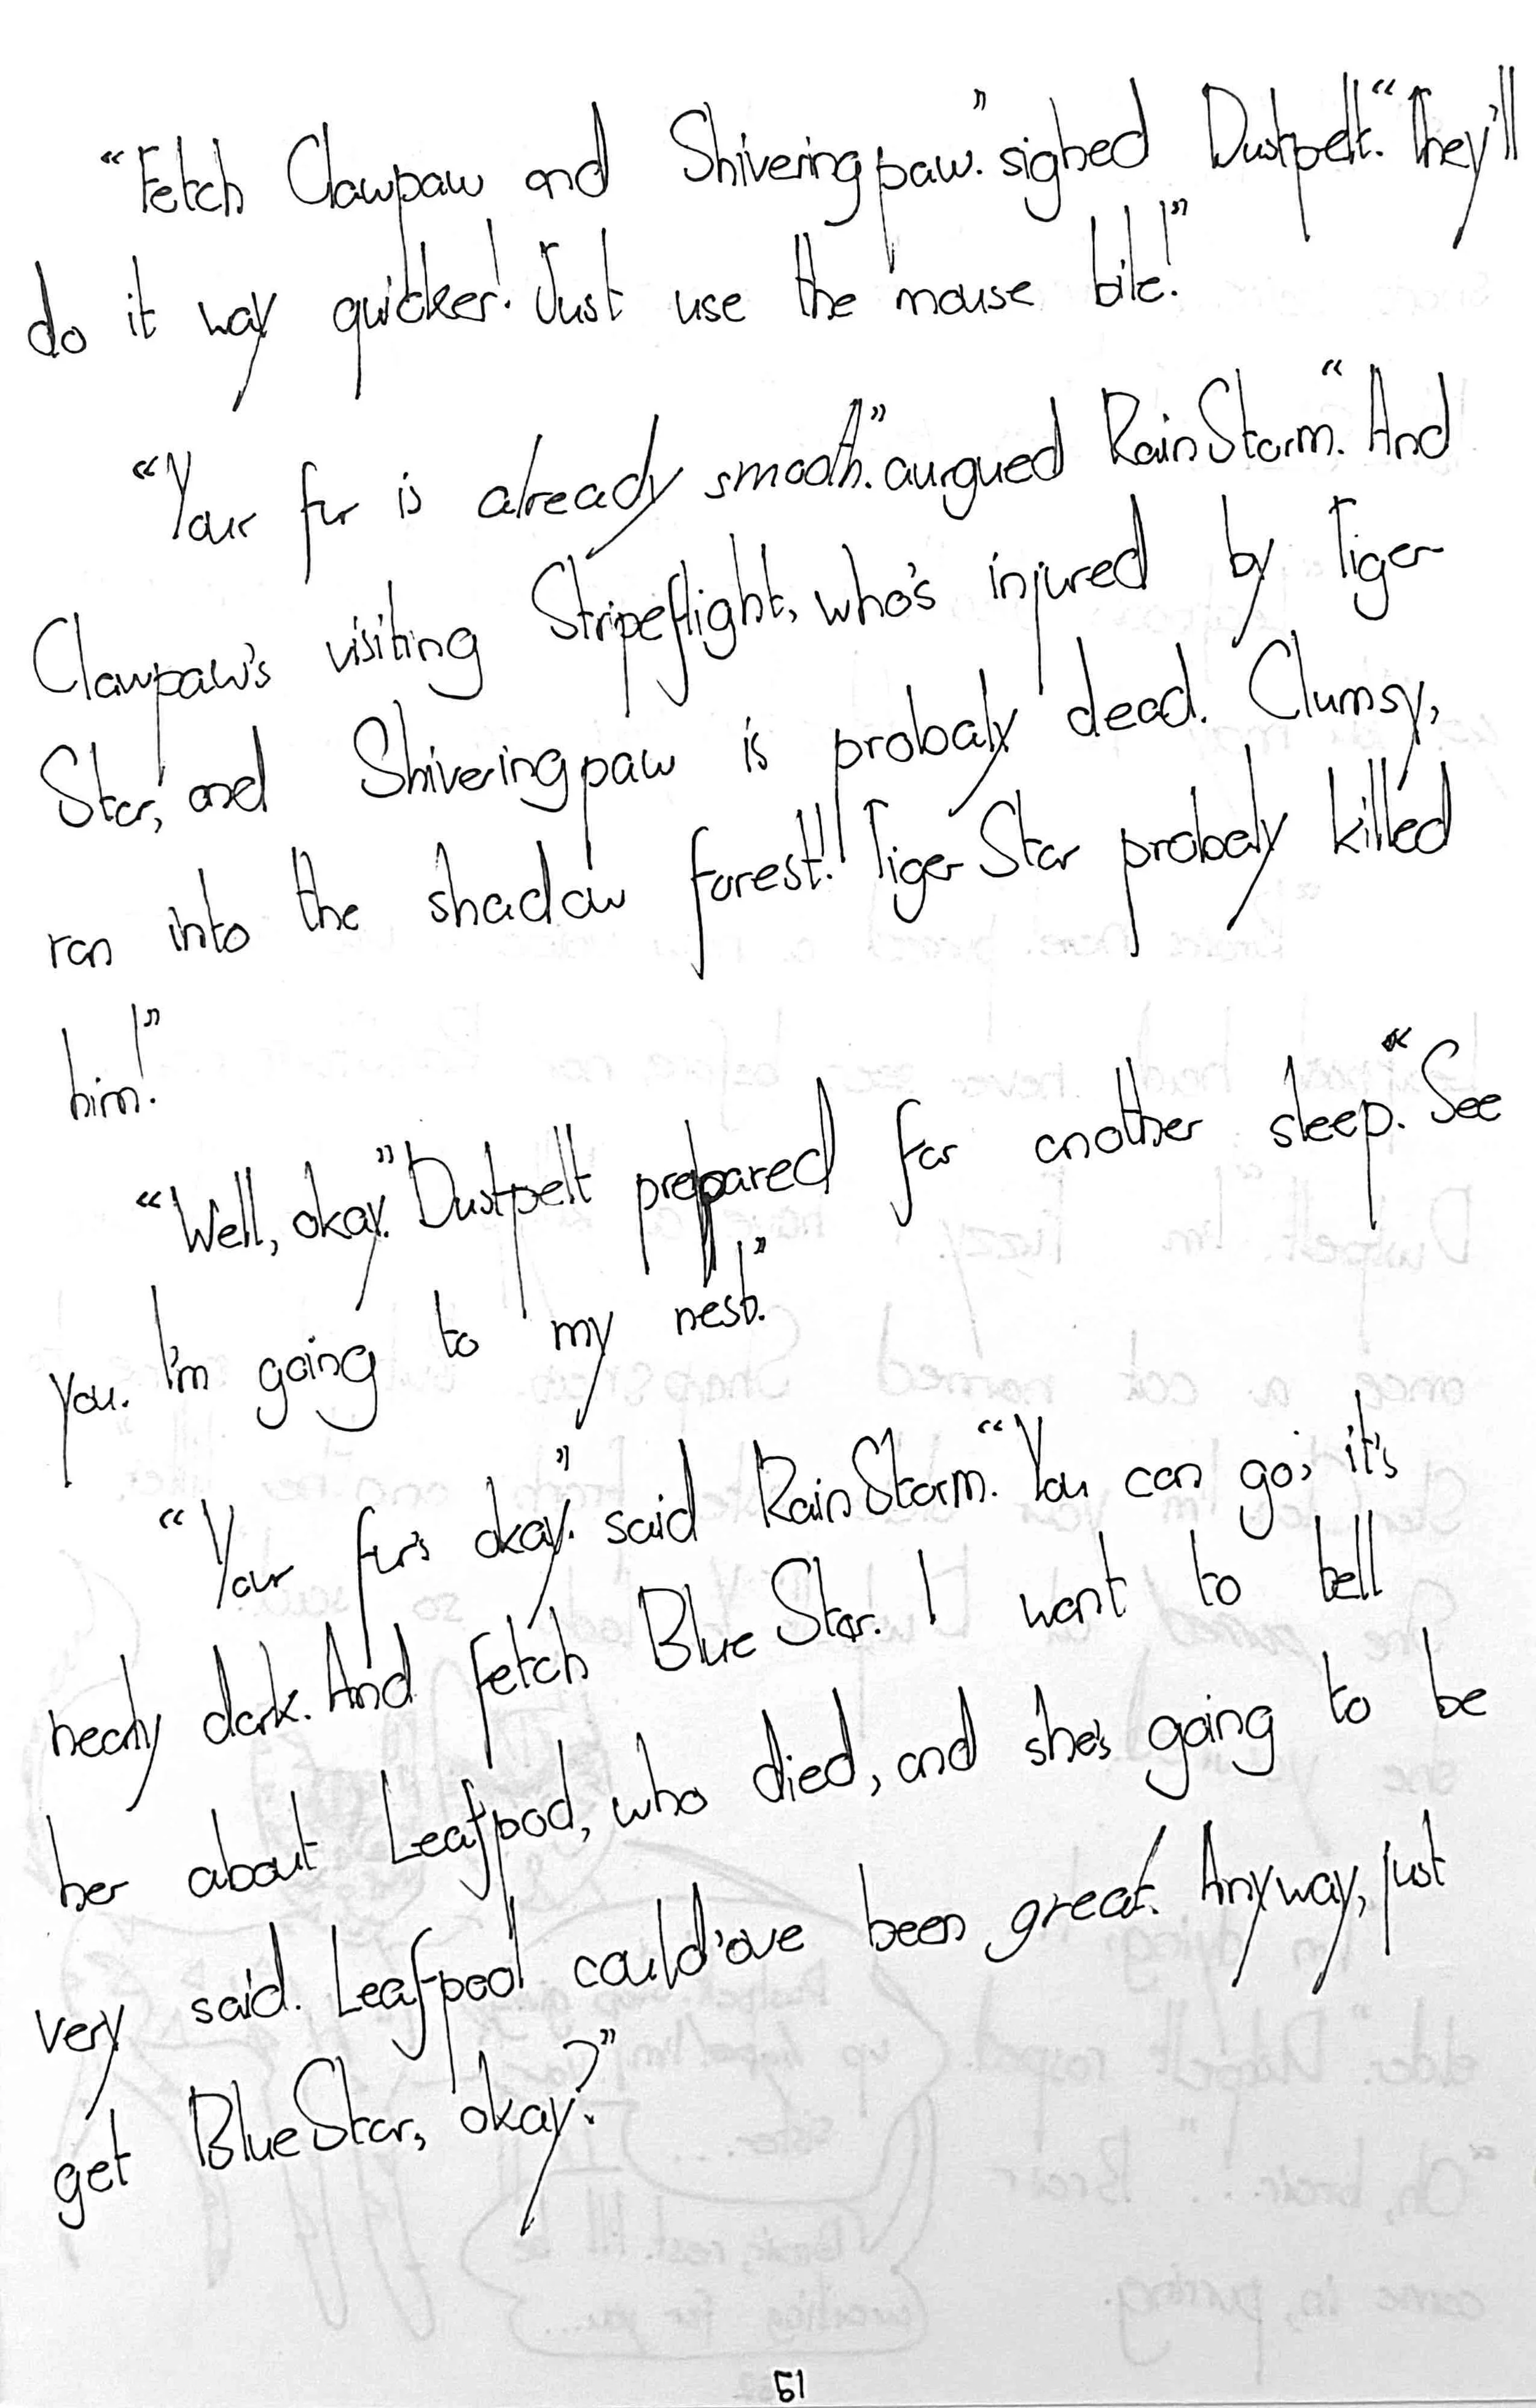 “Fetch Clawpaw and Shiveringpaw.” sighed Dustpelt. “They'll
do it way quicker! Just use the mouse bile!”
“Your fur is already smooth.” aurgued RainStorm. “And
Clawpaw's visiting Stripeflight, who's injured by Tiger
Star, and Shiveringpaw is probaly dead. Clumsy,
ran into the shadow forest!! TigerStar probaly killed
him!”
“Well, okay.” Dustpelt prepared for another sleep. “See
you. I'm going to my nest!”
“Your fur's okay.” said RainStorm. “You can go; it's
nearly dark. And fetch BlueStar. I want to tell
her about Leafpool, who died, and she's going to be
very said. Leafpool could'ove been great! Anyway, just
get BlueStar, okay?”
51